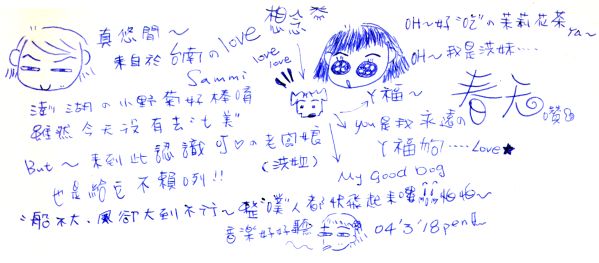 真悠閒～
來自於台南のlove
Sammi
澎湖の小野菊好棒唷
雖然今天沒有去"七美"
But～來到此認識可♡の老闆娘
(洪姐)
也是給它不賴咧!!
船不大、風卻大到不行～整"噗"人都快飛起來囉 怕怕～
音樂好好聽
04'3'18 pen
想念
love
love
OH～好"吃"の茉莉花茶ya～
OH～我是洪妹....
丫福～
you是我永遠の春天讚
丫福加....Love★
My Good Dog